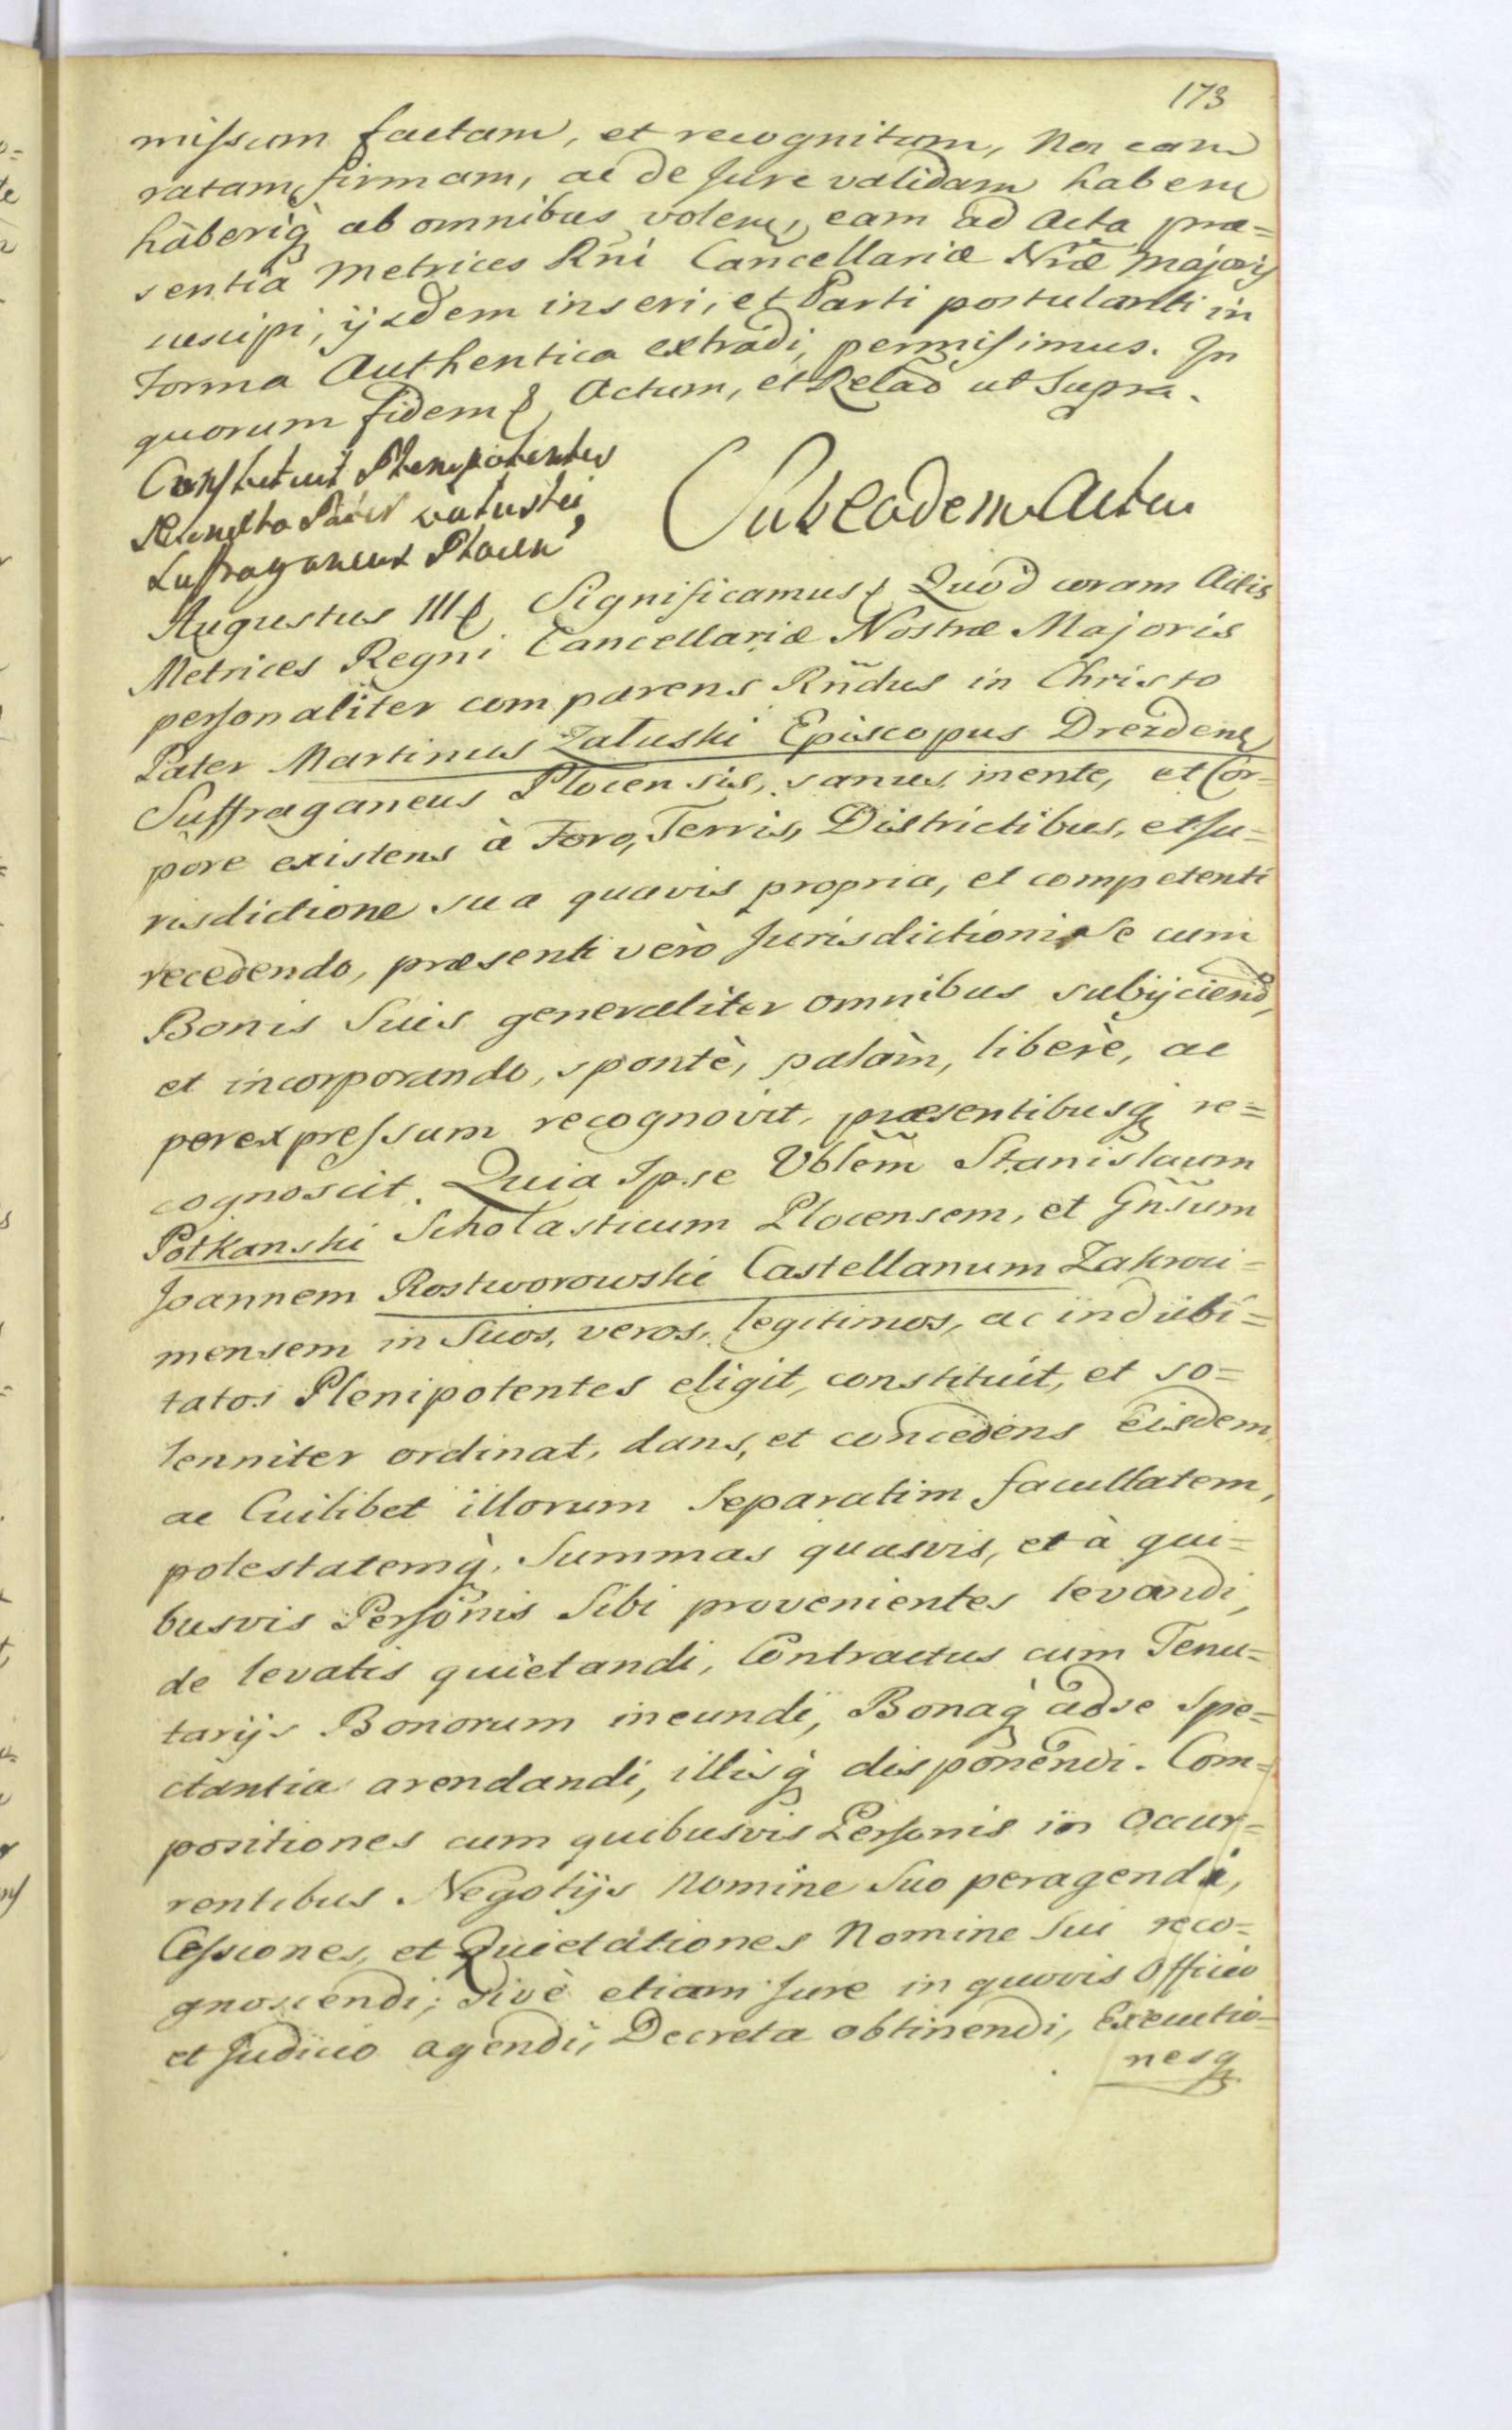 173
missum factam, et recognitam, Nos eam
ratam, firmam, ac de Jure validam habere
haberiq; ab omnibus volen, eam ad Acta præ=
sentia Metrices Rñi Cancellariæ Nræ Majoris
suscipi, ijsdem inseri, et Parti postulanti in
Forma Authentica extradi, permisimus. In
quorum fidem Actum, et Relaõ ut Supra.
Constituit Plenipotentes
Załuski,
Suffraganeus Plocen
Sub eadem Actu
Augustus III Significamus Quod coram Actis
Metrices Regni Cancellariæ Nostræ Majoris
personaliter comparens Rñdus in Christo
Pater Martinus Załuski Episcopus Drezdenś
Suffraganeus Plocensis, sanus mente, et Cor=
pore existens à Foro, Terris, Districtibus, et Ju=
risdictione sua quavis propria, et competenti
recedendo, præsenti verò Jurisdictioni Se cum
Bonis Suis generaliter omnibus subijciend,
et incorporando, spontè, palàm, liberè, ac
per expressum recognovit, præsentibusq; re=
cognoscit. Quia Ipse Vblem̃ Stanislaum
Potkanski Scholasticum Plocensem, et Gñsum
Joannem Rostworowski Castellanum Zakroci=
mensem in Suos, veros, legitimos, ac indubi=
tatos Plenipotentes eligit, constituit, et so=
lenniter ordinat, dans, et concedens Eisdem,
ac Cuilibet illorum Separatim facultatem,
potestatemq; Summas quasvis, et à qui=
busvis Personis Sibi provenientes levandi,
de levatis quietandi, Contractus cum Tenu=
tarijs Bonorum ineundi, Bonaq; ad se Spe=
ctantia arendandi, illisq; disponendi. Com=
positiones cum quibusvis Personis in Occur=
rentibus Negotijs Nomine Suo peragendi,
Cessiones, et Quietationes Nomine Sui reco=
gnoscendi; Sivè etiam Jure in quovis Officio
et Judicio agendi, Decreta obtinendi, Executio=
nesq;